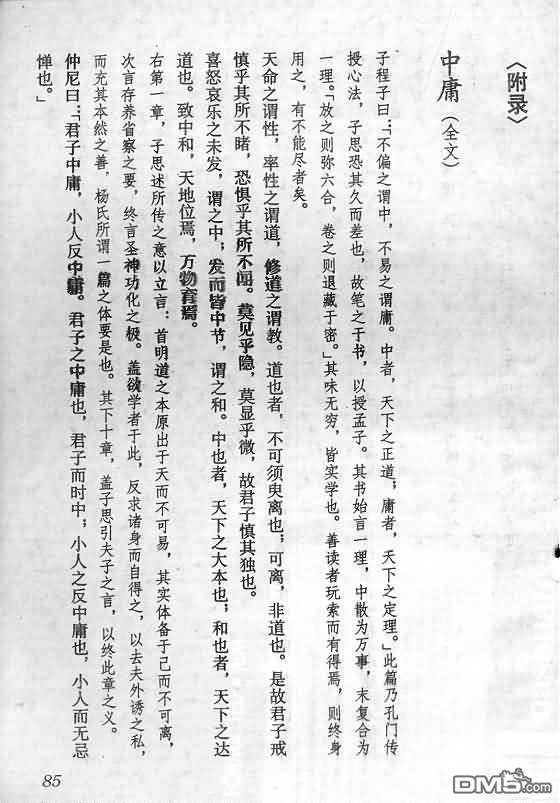 〈附录〉
中庸（全文）
子程子曰：“不偏之谓中，不易之谓庸。中者，天下之正道；庸者，天下之定理。”此篇乃孔门传
授心法，子思恐其久而差也，故笔之于书，以授孟子。其书始言一理，中散为万事，末复合为
一理。“放之则弥六合，卷之则退藏于密。”其味无穷，皆实学也。善读者玩索而有得焉，则终身
用之，有不能尽者矣。
天命之谓性，率性之谓道，修道之谓教。道也者，不可须臾离也；可离，非道也。是故君子戒
慎乎其所不睹，恐惧乎其所不闻。莫见乎隐，莫显乎微，故君子慎其独也。
喜怒哀乐之未发，谓之中；发而皆中节，谓之和。中也者，天下之大本也；和也者，天下之达
道也。致中和，天地位焉，万物育焉。
右第一章，子思述所传之意以立言：首明道之本原出于天而不可易，其实体备于己而不可离，
次言存养省察之要，终言圣神功化之极。盖欲学者于此，反求诸身而自得之，以去夫外诱之私，
而充其本然之善，杨氏所谓一篇之体要是也。其下十章，盖子思引夫子之言，以终此章之义。
仲尼曰：“君子中庸，小人反中庸。君子之中庸也，君子而时中；小人之反中庸也，小人而无忌
惮也。”
85
DM5.com